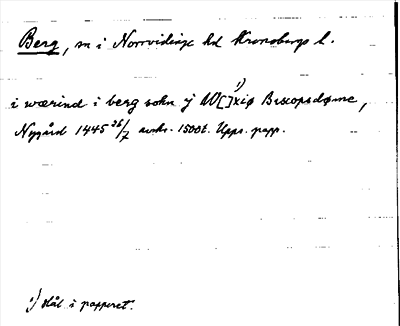 Berg, sn i Norrvidinge hd Kronobergs l.
1)
i wærind i berg sokn j W[]xiø Biscopsdøme,
Nygård 1445 26/7 avskr. 1500t. Upps. papp.
1) Hål i papperet.